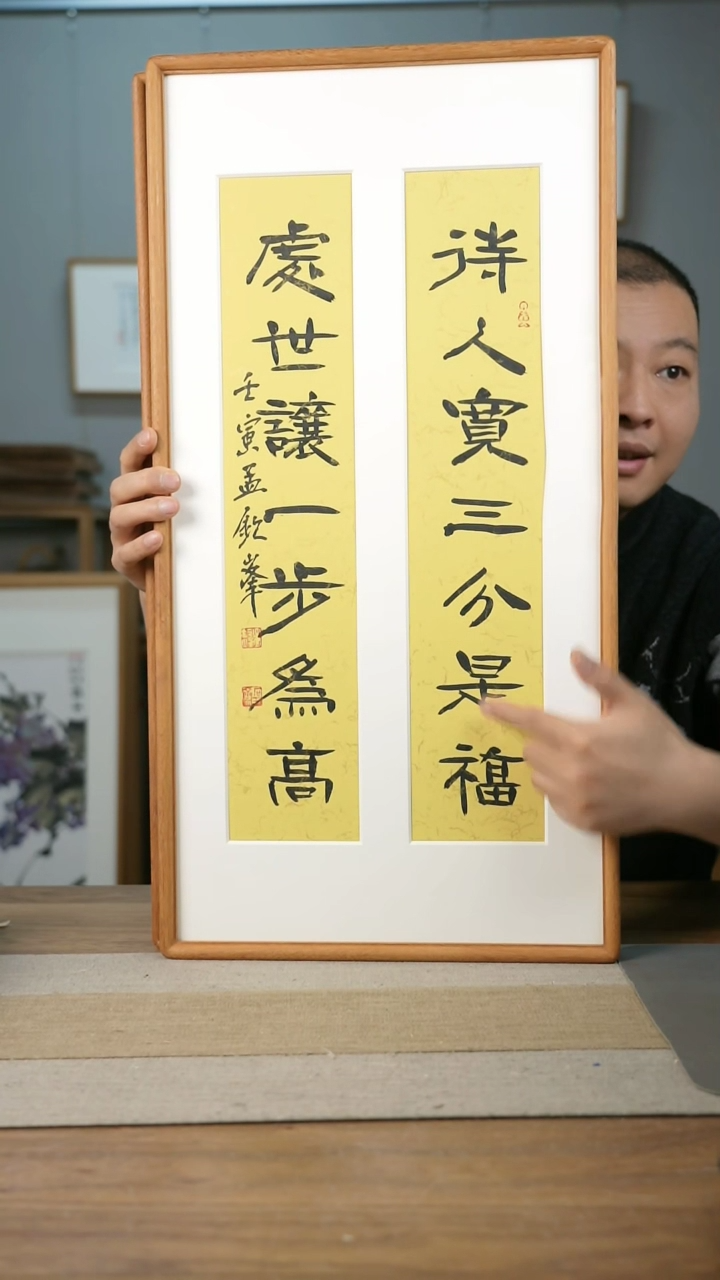 待人寬三分是福
處世讓一步為高
壬寅孟欽峰